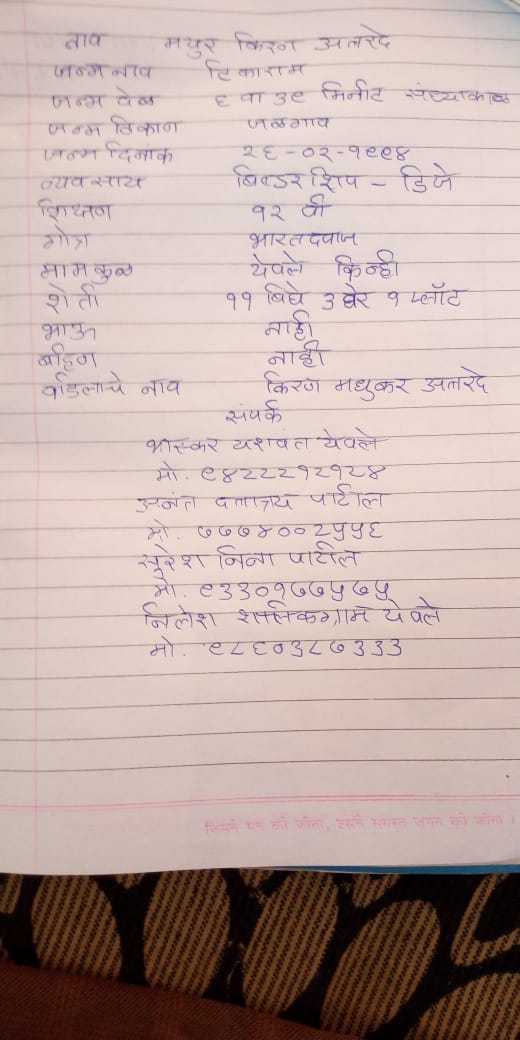 नाव मयुर किरन अत्तरदे
जन्मनाव टिकाराम
जन्म वेळ ६ वा ३९ मिनीट संध्याकाळ
जन्म ठिकान जळगाव
जन्म दिनांक २६-०२-१९९४
व्यवसाय बिल्डरशिप - डिजे
शिक्षण १२ वी
गोत्र भारतदवाज
मामकुळ येवले किन्ही
शेती ११ बिघे ३ घेर १ प्लॉट
भाऊ नाही
बहिण नाही
वडिलांचे नाव किरण मधुकर अत्तरदे
संपर्क
भास्कर यशवंत येवले
मो. ९४२२२१२१२४
अनंत दत्तात्रय पाटील
मो. ७७७४००२५५६
सुरेश निना पाटील
मो. ९३३०१७७५७५
निलेश येवले
मो. ९८६०३८७३३३
जिसने मन को जीता, उसने समस्त जगत को जीता ।